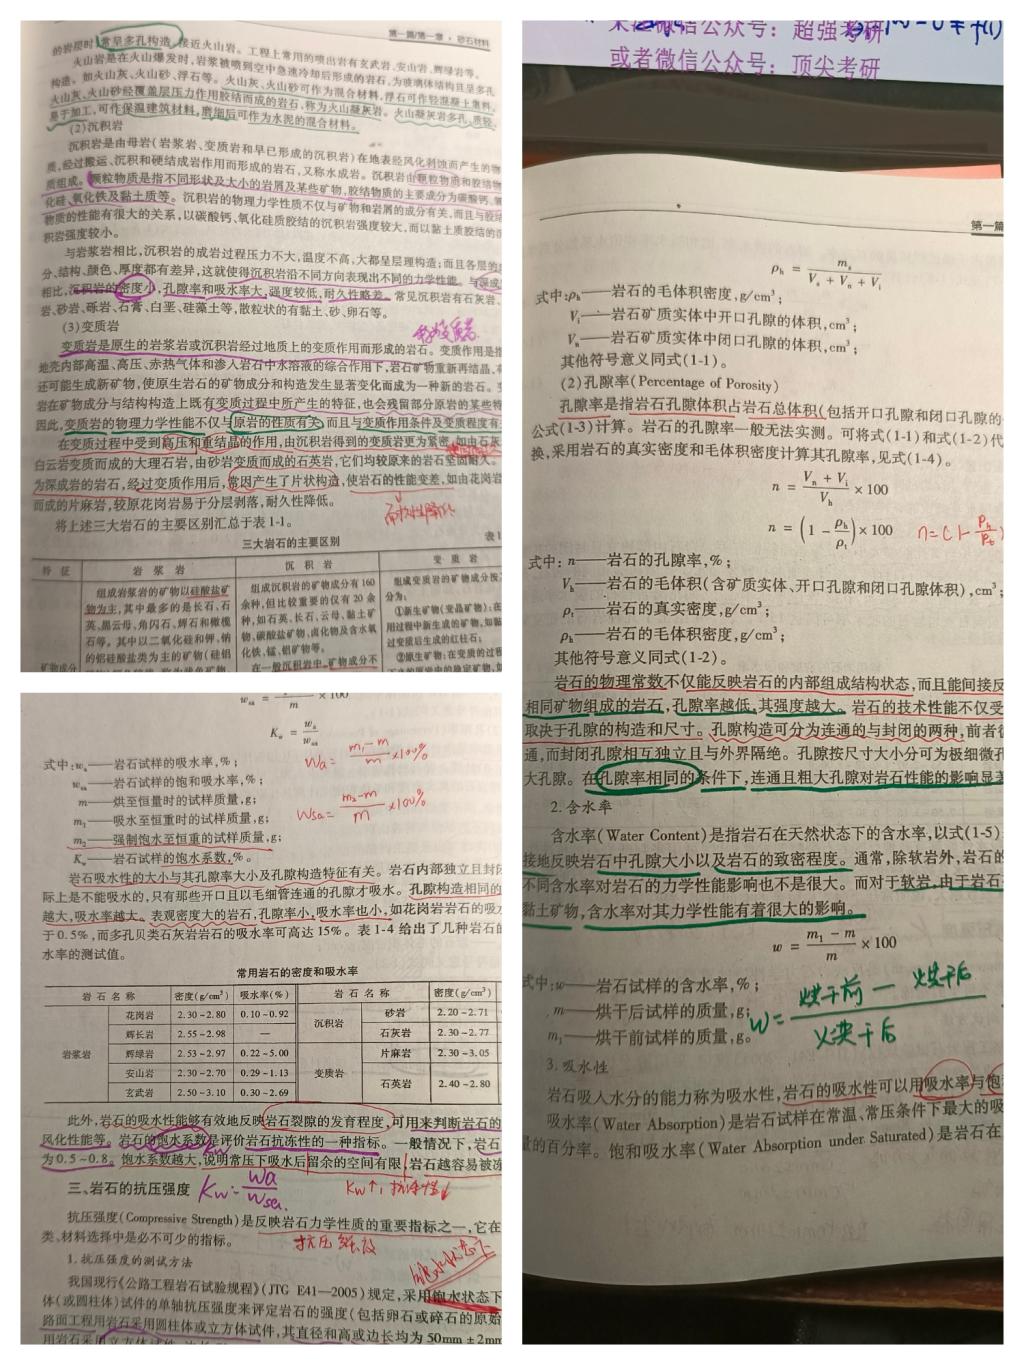 第一篇/第一章·砂石材料
的岩层时,常呈多孔构造,接近火山岩。工程上常用的喷出岩有玄武岩、安山岩、辉绿岩等。
火山岩是在火山爆发时,岩浆被喷到空中急速冷却后形成的岩石,为玻璃体结构且呈多孔
构造。如火山灰、火山砂、浮石等。火山灰、火山砂可作为混合材料,浮石可作轻混凝土集料。
火山灰、火山砂经覆盖层压力作用胶结而成的岩石,称为火山凝灰岩。火山凝灰岩多孔、质轻、
易于加工,可作保温建筑材料,磨细后可作为水泥的混合材料。
(2)沉积岩
沉积岩是由母岩(岩浆岩、变质岩和早已形成的沉积岩)在地表经风化剥蚀而产生的物
质,经过搬运、沉积和硬结成岩作用而形成的岩石,又称水成岩。沉积岩由颗粒物质和胶结物
质组成。颗粒物质是指不同形状及大小的岩屑及某些矿物,胶结物质的主要成分为碳酸钙、氧
化硅、氧化铁及黏土质等。沉积岩的物理力学性质不仅与矿物和岩屑的成分有关,而且与胶结
物质的性能有很大的关系,以碳酸钙、氧化硅质胶结的沉积岩强度较大,而以黏土质胶结的沉
积岩强度较小。
与岩浆岩相比,沉积岩的成岩过程压力不大,温度不高,大都呈层理构造;而且各层的成
分、结构、颜色、厚度都有差异,这就使得沉积岩沿不同方向表现出不同的力学性能。与深成
相比,沉积岩的密度小,孔隙率和吸水率大,强度较低,耐久性略差。常见沉积岩有石灰岩、
岩、砂岩、砾岩、石膏、白垩、硅藻土等,散粒状的有黏土、砂、卵石等。
(3)变质岩
变质岩是原生的岩浆岩或沉积岩经过地质上的变质作用而形成的岩石。变质作用是指
地壳内部高温、高压、赤热气体和渗入岩石中水溶液的综合作用下,岩石矿物重新再结晶,有
还可能生成新矿物,使原生岩石的矿物成分和构造发生显著变化而成为一种新的岩石。变
岩在矿物成分与结构构造上既有变质过程中所产生的特征,也会残留部分原岩的某些特
因此,变质岩的物理力学性能不仅与原岩的性质有关,而且与变质作用条件及变质程度有关
在变质过程中受到高压和重结晶的作用,由沉积岩得到的变质岩更为紧密,如由石灰
白云岩变质而成的大理石岩,由砂岩变质而成的石英岩,它们均较原来的岩石坚固耐久。
为深成岩的岩石,经过变质作用后,常因产生了片状构造,使岩石的性能变差,如由花岗岩
而成的片麻岩,较原花岗岩易于分层剥落,耐久性降低。
耐久性降低
将上述三大岩石的主要区别汇总于表1-1。
三大岩石的主要区别 表1
特征 岩浆岩 沉积岩 变质岩
组成岩浆岩的矿物以硅酸盐矿
物为主,其中最多的是长石、石
英、黑云母、角闪石、辉石和橄榄
石等。其中以二氧化硅和钾、钠
的铝硅酸盐类为主的矿物(硅铝
组成沉积岩的矿物成分有160
余种,但比较重要的仅有20余
种,如石英、长石、云母、黏土矿
物、碳酸盐矿物、卤化物及含水氧
化铁、锰、铝矿物等。
在一般沉积岩中,矿物成分不
组成变质岩的矿物成分按
分为:
①新生矿物(变晶矿物):在
用过程中新生成的矿物,如黏
过变质后生成的红柱石;
②原生矿物:在变质的过程
矿物成分
m × 100
K_w = w_a / w_sa
式中:w_a——岩石试样的吸水率,%;
w_sa——岩石试样的饱和吸水率,%;
m——烘至恒量时的试样质量,g;
m₁——吸水至恒重时的试样质量,g;
m₂——强制饱水至恒重的试样质量,g;
K_w——岩石试样的饱水系数,%。
Wa = (m₁-m)/m ×100%
Wsa = (m₂-m)/m ×100%
岩石吸水性的大小与其孔隙率大小及孔隙构造特征有关。岩石内部独立且封闭
际上是不能吸水的,只有那些开口且以毛细管连通的孔隙才吸水。孔隙构造相同的
越大,吸水率越大。表观密度大的岩石,孔隙率小,吸水率也小,如花岗岩岩石的吸水
于0.5%,而多孔贝类石灰岩岩石的吸水率可高达15%。表1-4给出了几种岩石的
水率的测试值。
常用岩石的密度和吸水率
岩石名称 密度(g/cm³) 吸水率(%) 岩石名称 密度(g/cm³)
岩浆岩 花岗岩 2.30~2.80 0.10~0.92 沉积岩 砂岩 2.20~2.71
辉长岩 2.55~2.98 — 石灰岩 2.30~2.77
辉绿岩 2.53~2.97 0.22~5.00 变质岩 片麻岩 2.30~3.05
安山岩 2.30~2.70 0.29~1.13 石英岩 2.40~2.80
玄武岩 2.50~3.10 0.30~2.69
此外,岩石的吸水性能够有效地反映岩石裂隙的发育程度,可用来判断岩石的
风化性能等。岩石的饱水系数是评价岩石抗冻性的一种指标。一般情况下,岩石
为0.5~0.8。饱水系数越大,说明常压下吸水后留余的空间有限,岩石越容易被冻
三、岩石的抗压强度
Kw = Wa/Wsa
Kw↑,抗冻性↓
抗压强度(Compressive Strength)是反映岩石力学性质的重要指标之一,它在
类、材料选择中是必不可少的指标。
抗压强度
1. 抗压强度的测试方法
饱水状态下
我国现行《公路工程岩石试验规程》(JTG E41—2005)规定,采用饱水状态下
体(或圆柱体)试件的单轴抗压强度来评定岩石的强度(包括卵石或碎石的原始
路面工程用岩石采用圆柱体或立方体试件,其直径和高或边长均为50mm±2mm
微信公众号:超强考研
或者微信公众号:顶尖考研
第一篇
ρ_h = m_s / (V_s + V_n + V_i)
式中:ρ_h——岩石的毛体积密度,g/cm³;
V_i——岩石矿质实体中开口孔隙的体积,cm³;
V_n——岩石矿质实体中闭口孔隙的体积,cm³;
其他符号意义同式(1-1)。
(2)孔隙率(Percentage of Porosity)
孔隙率是指岩石孔隙体积占岩石总体积(包括开口孔隙和闭口孔隙的
公式(1-3)计算。岩石的孔隙率一般无法实测。可将式(1-1)和式(1-2)代
换,采用岩石的真实密度和毛体积密度计算其孔隙率,见式(1-4)。
n = (V_n + V_i)/V_h × 100
n = (1 - ρ_h/ρ_t) × 100
n=(1-ρh/ρt)
式中:n——岩石的孔隙率,%;
V_h——岩石的毛体积(含矿质实体、开口孔隙和闭口孔隙体积),cm³;
ρ_t——岩石的真实密度,g/cm³;
ρ_h——岩石的毛体积密度,g/cm³;
其他符号意义同式(1-2)。
岩石的物理常数不仅能反映岩石的内部组成结构状态,而且能间接反
相同矿物组成的岩石,孔隙率越低,其强度越大。岩石的技术性能不仅受
取决于孔隙的构造和尺寸。孔隙构造可分为连通的与封闭的两种,前者彼
通,而封闭孔隙相互独立且与外界隔绝。孔隙按尺寸大小分可为极细微孔
大孔隙。在孔隙率相同的条件下,连通且粗大孔隙对岩石性能的影响显著
2. 含水率
含水率(Water Content)是指岩石在天然状态下的含水率,以式(1-5)
接地反映岩石中孔隙大小以及岩石的致密程度。通常,除软岩外,岩石的
不同含水率对岩石的力学性能影响也不是很大。而对于软岩,由于岩石
黏土矿物,含水率对其力学性能有着很大的影响。
w = (m₁ - m)/m × 100
式中:w——岩石试样的含水率,%;
m——烘干后试样的质量,g;
m₁——烘干前试样的质量,g。
W = (烘干前 - 烘干后)/烘干后
3. 吸水性
岩石吸入水分的能力称为吸水性,岩石的吸水性可以用吸水率与饱
吸水率(Water Absorption)是岩石试样在常温、常压条件下最大的吸
量的百分率。饱和吸水率(Water Absorption under Saturated)是岩石在